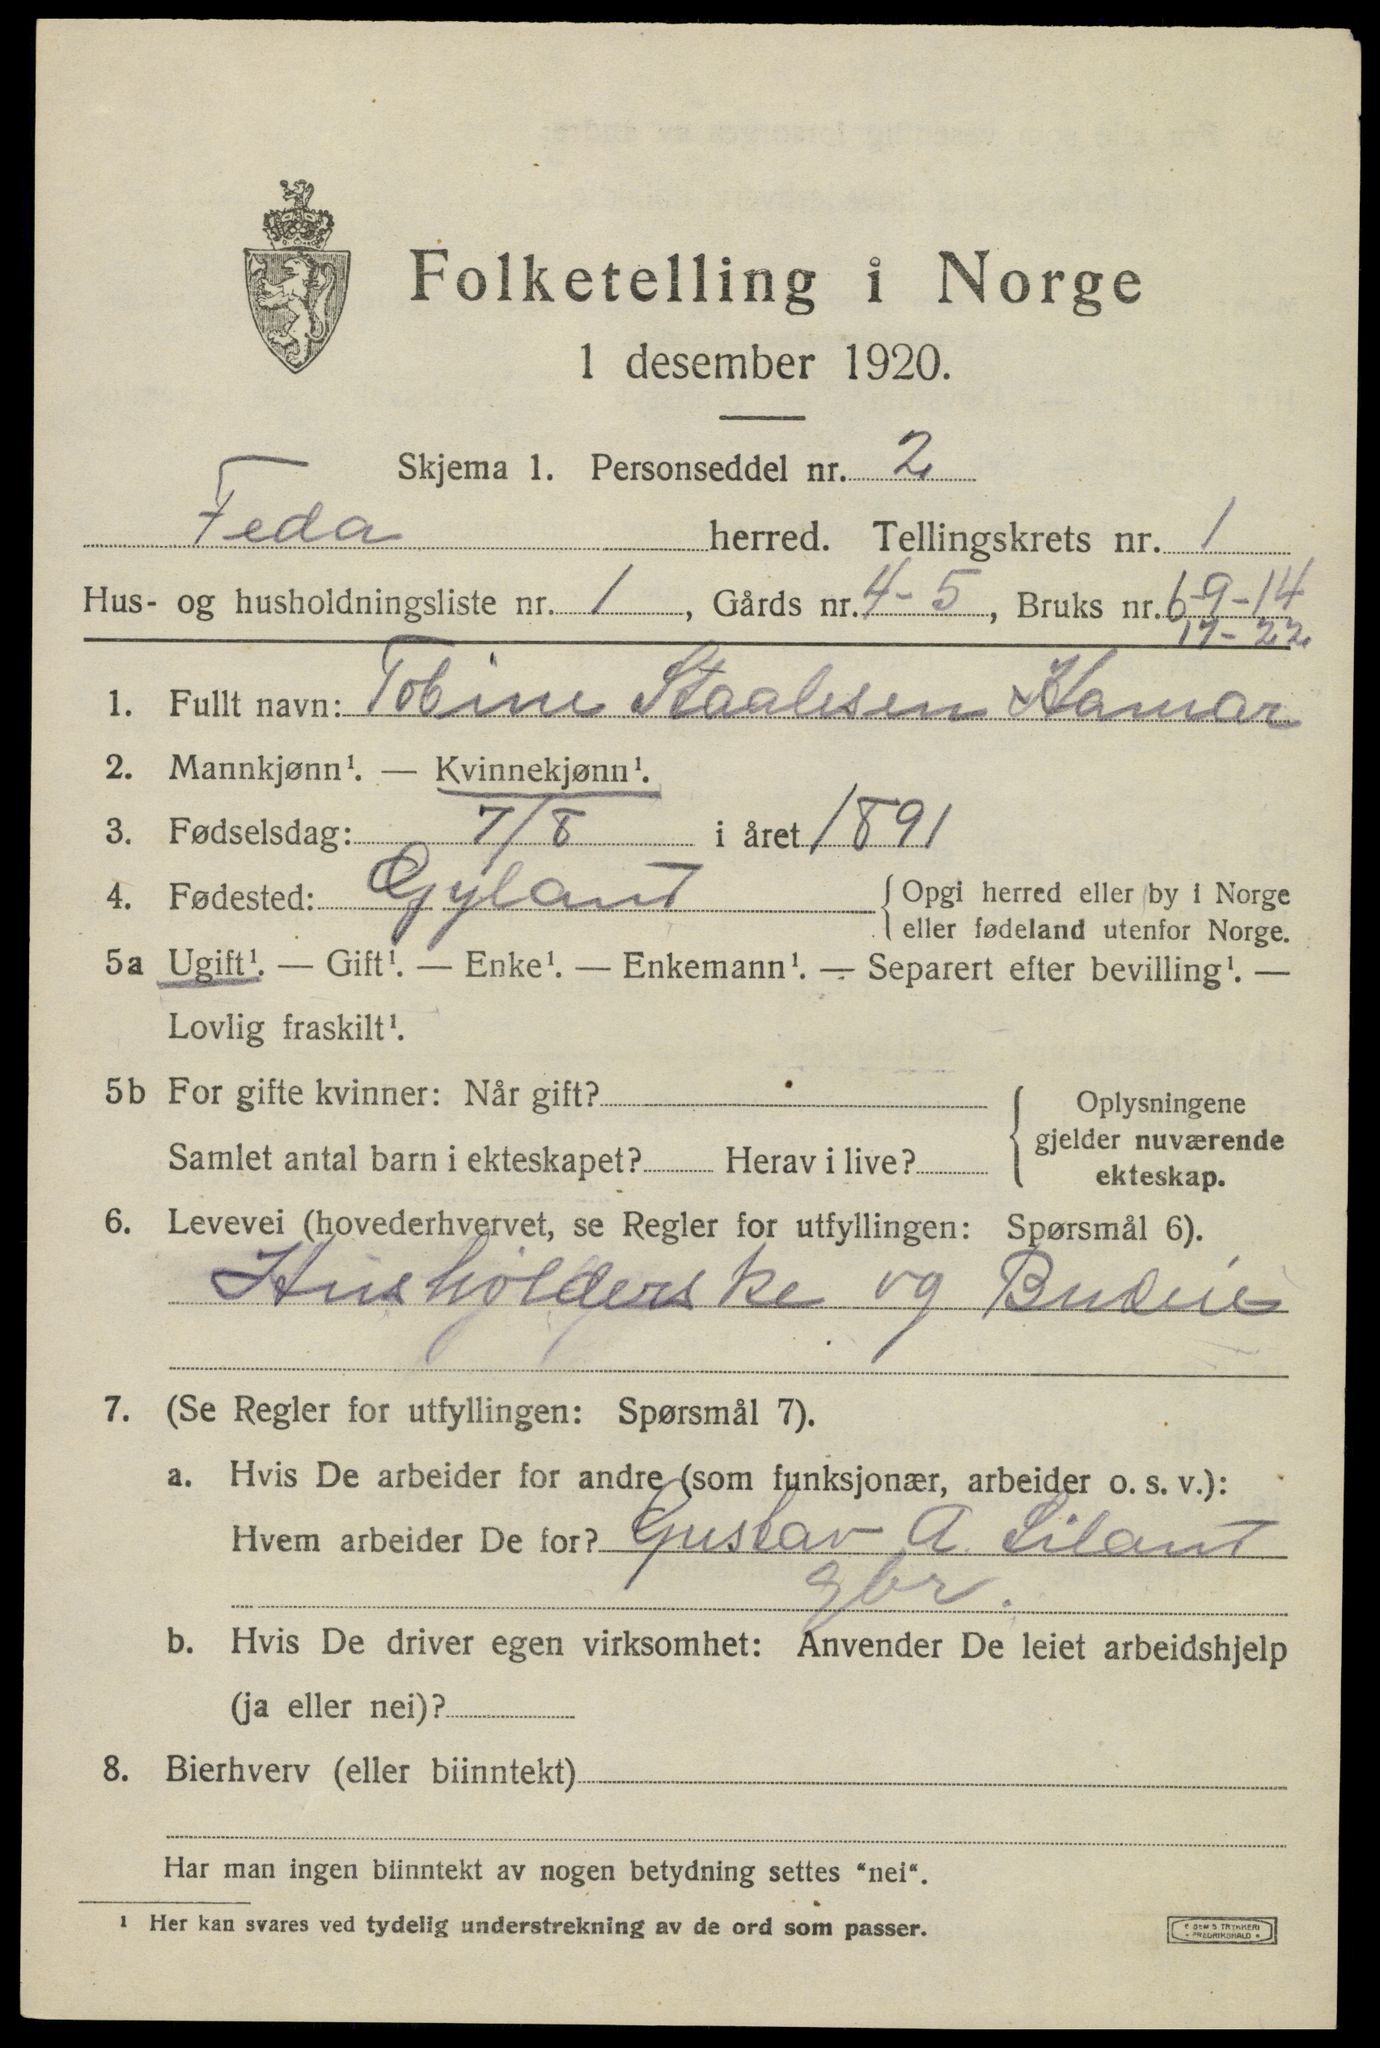 Folketelling i Norge
1 desember 1920.
Skjema 1. Personseddel nr. 2
Feda herred. Tellingskrets nr. 1
Hus- og husholdningsliste nr. 1, Gårds nr. 4-5, Bruks nr. 6-9-14
17-22
1. Fullt navn: Tobine Staalesen Hamar
2. Mannkjønn¹. — Kvinnekjønn¹.
3. Fødselsdag: 7/8 i året 1891
4. Fødested: Gyland {Opgi herred eller by i Norge
eller fødeland utenfor Norge.
5a Ugift¹. — Gift¹. — Enke¹. — Enkemann¹. — Separert efter bevilling¹. —
Lovlig fraskilt¹.
5b For gifte kvinner: Når gift?
Samlet antal barn i ekteskapet? Herav i live?
{Oplysningene
gjelder nuværende
ekteskap.
6. Levevei (hovederhvervet, se Regler for utfyllingen: Spørsmål 6).
Husholderske og Budeie
7. (Se Regler for utfyllingen: Spørsmål 7).
a. Hvis De arbeider for andre (som funksjonær, arbeider o. s. v.):
Hvem arbeider De for? Gustav A. Liland
gbr.
b. Hvis De driver egen virksomhet: Anvender De leiet arbeidshjelp
(ja eller nei)?
8. Bierhverv (eller biinntekt)
Har man ingen biinntekt av nogen betydning settes "nei".
¹ Her kan svares ved tydelig understrekning av de ord som passer.
TRYKKERI
FREDRIKSHALD